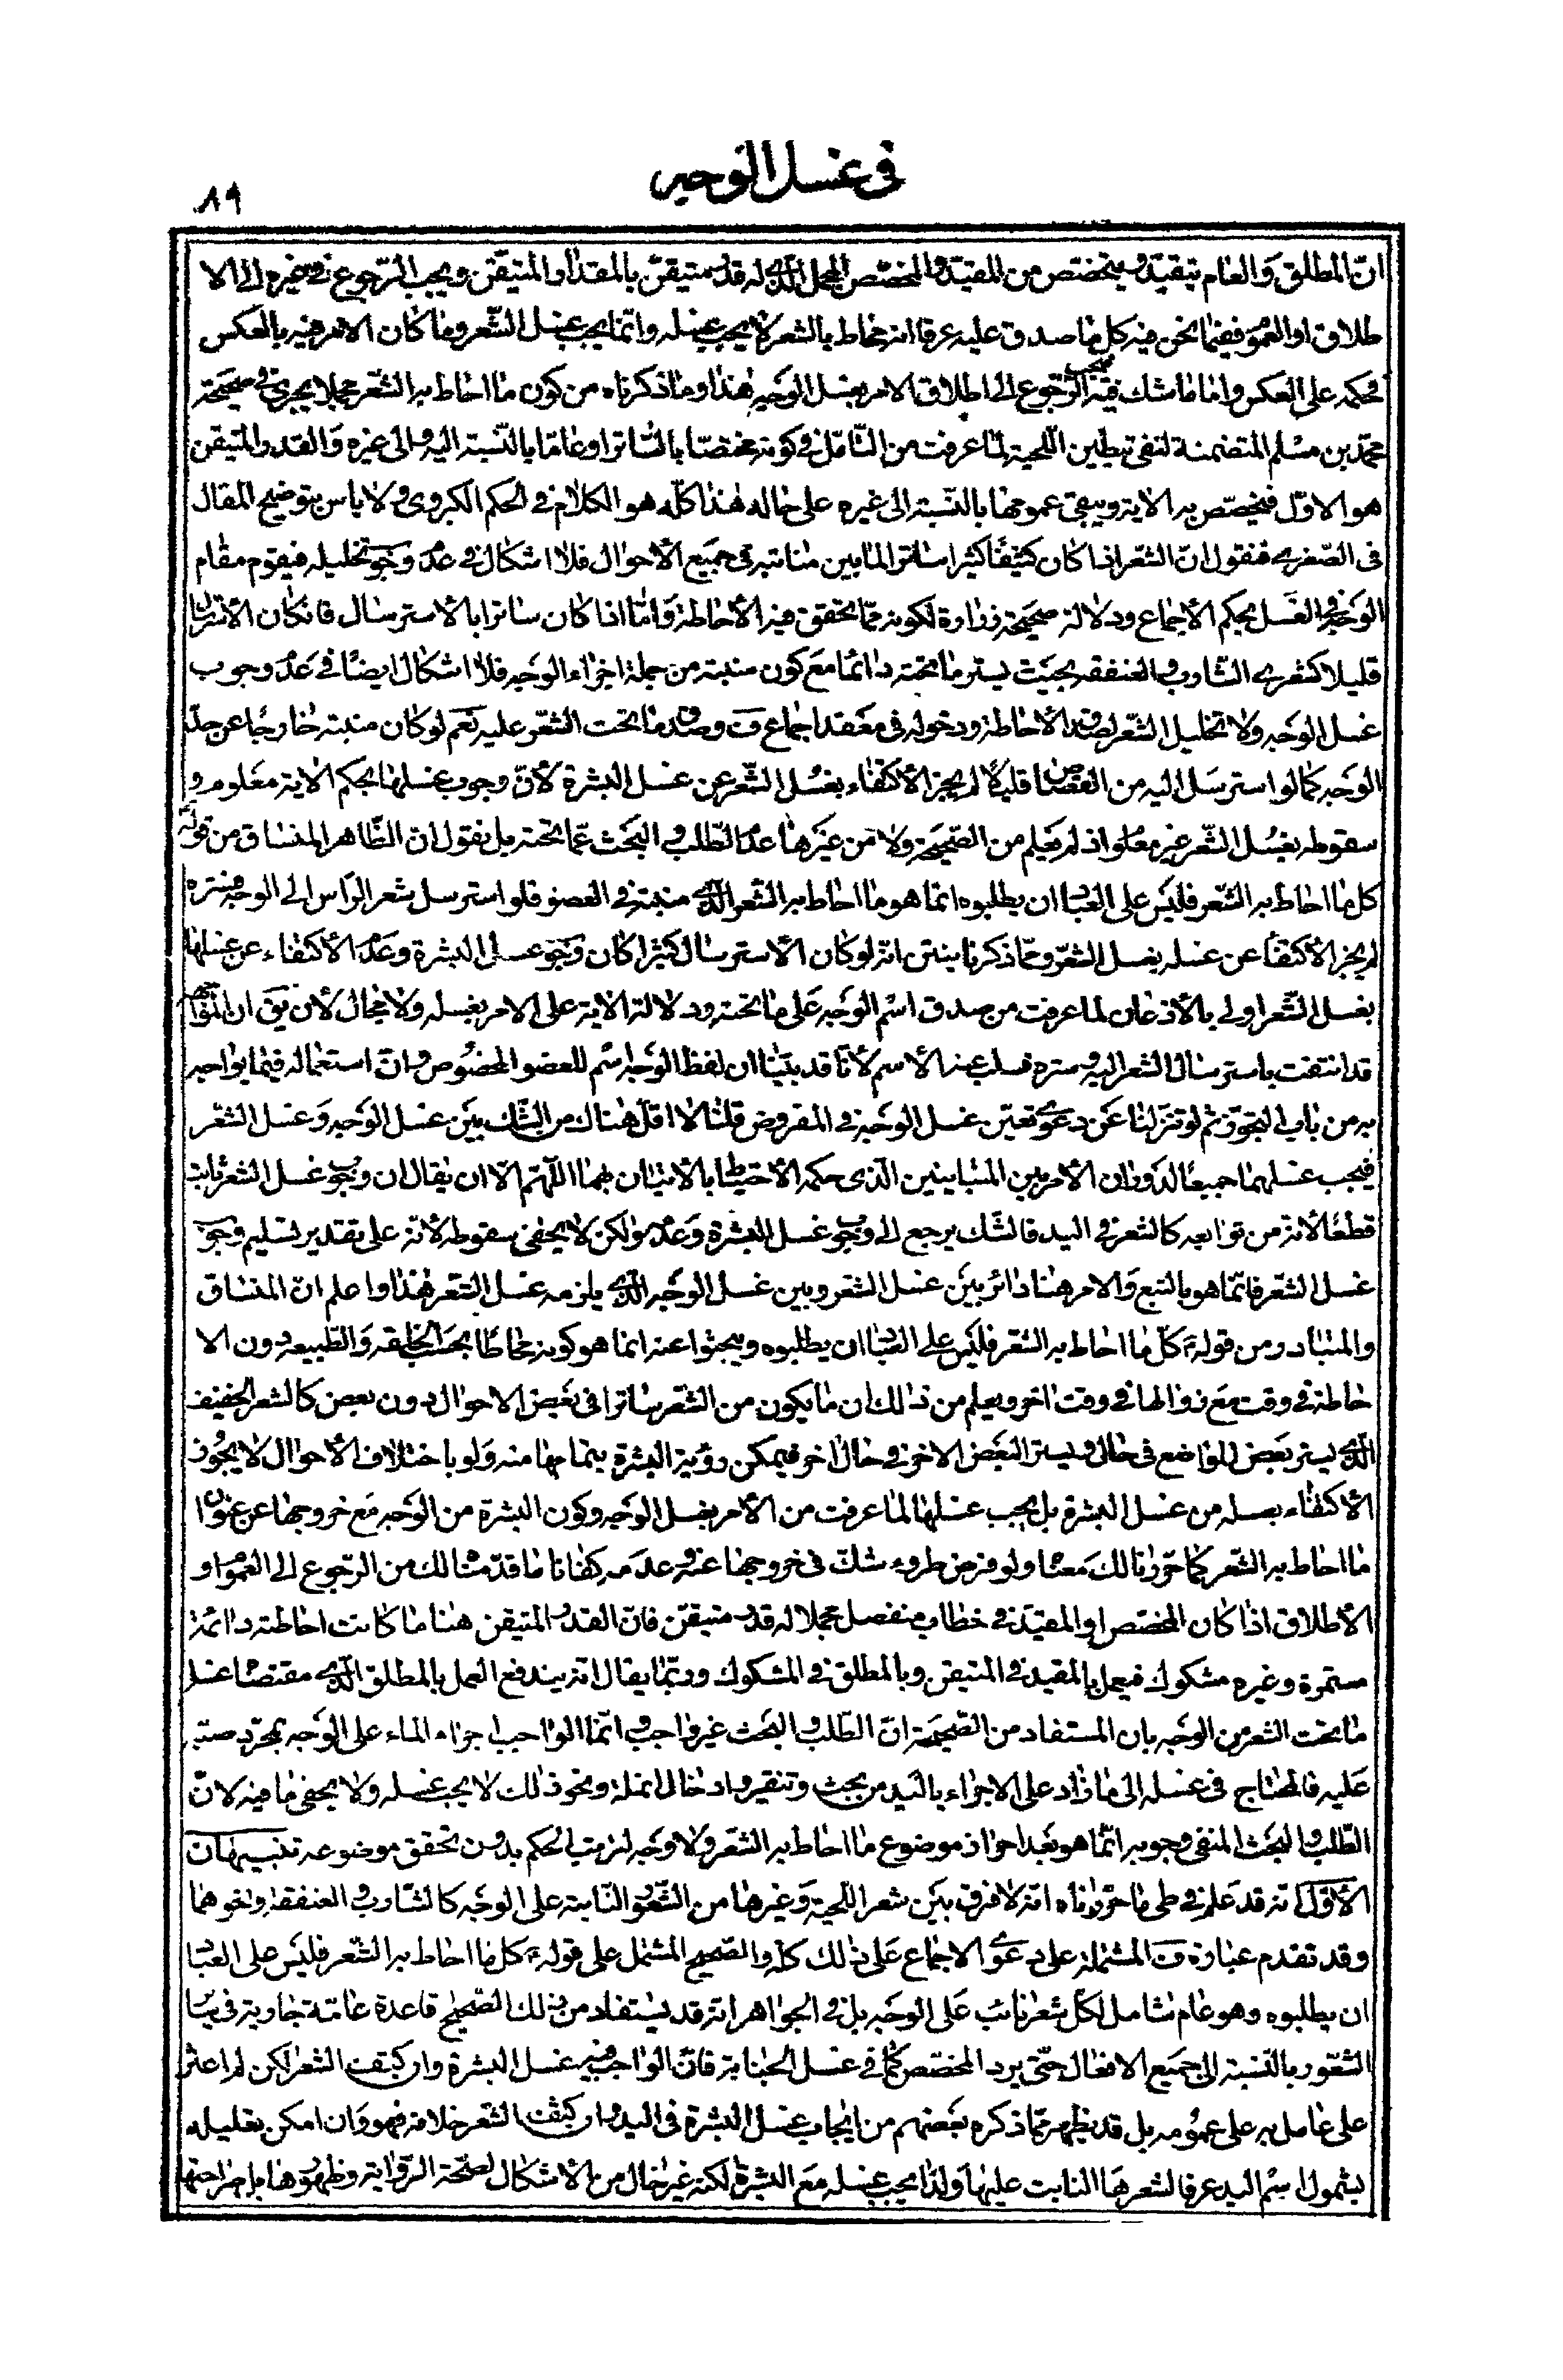 في غسل الوجه
٨٩
انّ المطلق والعام يتقيّد ويتخصّص من المقيّد والمخصّص المجمل الّذي له قدر متيقّن بالمقدار المتيقّن ويجب الرّجوع في غيره الى الا
طلاق او العموم ففيما نحن فيه كلّ ما صدق عليه عرفا انه محاط بالشعر لا يجب غسله وانّما يجب غسل الشّعر وما كان الامر فيه بالعكس
فحكمه على العكس واما ما شك فيه فيجب الرّجوع الى اطلاق الامر بغسل الوجه هذا وما ذكرناه من كون ما احاط به الشّعر مجملا يجري في صحيحة
محمّد بن مسلم المتضمنة لنفي تبطين اللّحية لما عرفت من التّامّل في كونه مختصّا بالسّاتر او عامّا بالنّسبة اليه والى غيره والقدر المتيقن
هو الاوّل فيخصّص به الاية ويبقى عمومها بالنّسبة الى غيره على حاله هذا كلّه هو الكلام في الحكم الكبروي ولا باس بتوضيح المقال
في الصّغرى فنقول انّ الشّعر اذا كان كثيفا كثيرا ساترا لما بين منابته في جميع الأحوال فلا اشكال في عدم وجوب تخليله فيقوم مقام
الوجه في الغسل بحكم الأجماع ودلالة صحيحة زرارة لكونه ممّا تحقق فيه الأحاطة وامّا اذا كان ساترا بالأسترسال فان كان الأسترسال
قليلا كشعر الشّارب والعنفقه بحيث يستر ما تحته دائما مع كون منبته من جملة اجزاء الوجه فلا اشكال ايضا في عدم وجوب
غسل الوجه ولا تخليل الشّعر لصدق الأحاطة ودخوله في معقد اجماع ف وصدق ما تحت الشّعر عليه نعم لو كان منبته خارجا عن حدّ
الوجه كما لو استرسل اليه من القصاص قليلا لم يجز الأكتفاء بغسل الشّعر عن غسل البشرة لأنّ وجوب غسلها بحكم الاية معلوم و
سقوطه بغسل الشّعر غير معلوم اذ لم يعلم من الصّحيحة ولا من غيرها عدم الطّلب والبحث عمّا تحته بل نقول ان الظّاهر المنساق من قوله
كل ما احاط به الشّعر فليس على العباد ان يطلبوه انما هو ما احاط به الشّعر الّذي منبته في العضو فلو استرسل شعر الرّاس الى الوجه فستره
لم يجز الأكتفاء عن غسله بغسل الشّعر وممّا ذكرنا يتبيّن انه لو كان الأسترسال كثيرا كان وجوب غسل البشرة وعدم الأكتفاء عن غسلها
بغسل الشّعر اولى بالأذعان لما عرفت من صدق اسم الوجه على ما تحته ودلالة الاية على الامر بغسله ولا مجال لأن يق ان المواجهة
قد انتفت باسترسال الشّعر اليه وستره فسلب عنه الأسم لأنّا قد بيّنا ان لفظ الوجه اسم للعضو المخصوص وانّ استعماله فيما يواجه
به من باب التجوّز ثم لو تنزّلنا عن دعوى تعيّن غسل الوجه في المفروض قلنا لا اقلّ هناك من الشّك بين غسل الوجه وغسل الشّعر
فيجب غسلهما جميعا لدوران الأمر بين المتباينين الّذي حكمه الأحتياط بالأتيان بهما اللّهمّ الّا ان يقال ان وجوب غسل الشعر ثابت
قطعا لأنه من توابعه كالشعر في اليد فالشّك يرجع الى وجوب غسل البشرة وعدمه ولكن لا يخفى سقوطه لأنّه على تقدير تسليم وجوب
غسل الشّعر فانّما هو بالتبع والامر هنا دائر بين غسل الشّعر وبين غسل الوجه الّذي يلزمه غسل الشّعر هذا واعلم انّ المنساق
والمتبادر من قوله ع كلّ ما احاط به الشّعر فليس على العباد ان يطلبوه ويبحثوا عنه انما هو كونه محاطا بحسب الخلقه والطّبيعه دون الا
حاطة في وقت مع زوالها في وقت اخر ويعلم من ذلك ان ما يكون من الشّعر ساترا في بعض الاحوال دون بعض كالشعر الخفيف
الّذي يستر بعض المواضع في حال ويستر البعض الاخر في حال اخر فيمكن رؤية البشرة بتمامها منه ولو باختلاف الأحوال لا يجوز
الأكتفاء بغسله من غسل البشرة بل يجب غسلها لما عرفت من الأمر بغسل الوجه وكون البشرة من الوجه مع خروجها عن عنوان
ما احاط به الشّعر كما حرّرنا لك معنا ولو فرض طروء شكّ في خروجها عنه وعدمه كفانا ما قدّمنا لك من الرّجوع الى العموم او
الأطلاق اذا كان المخصّص او المقيّد في خطاب منفصل مجملا له قدر متيقّن فانّ القدر المتيقن هنا ما كانت احاطته دائمة
مستمرة وغيره مشكوك فيعمل بالمقيد في المتيقن وبالمطلق في المشكوك وربّما يقال انه يندفع العمل بالمطلق الّذي مقتضاه غسل
ما تحت الشعر من الوجه بان المستفاد من الصّحيحة انّ الطّلب والبحث غير واجب وانّما الواجب اجراء الماء على الوجه بمجرّد صبّه
عليه فالمحتاج في غسله الى ما زاد على الاجراء باليد من بحث وتنقير وادخال انملة ونحو ذلك لا يجب غسله ولا يخفى ما فيه لانّ
الطّلب والبحث المنفي وجوبه انّما هو بعد احراز موضوع ما احاط به الشّعر ولا وجه لترتيب الحكم بدون تحقق موضوعه تنبيهات
الأوّل انه قد علم في طي ما حرّرناه انه لا فرق بين شعر اللّحية وغيرها من الشّعور النّابتة على الوجه كالشّارب والعنفقه ونحوهما
وقد تقدم عبارة ف المشتملة على دعوى الاجماع على ذلك كلّه والصّحيح المشتمل على قوله ع كل ما احاط به الشّعر فليس على العباد
ان يطلبوه وهو عام شامل لكلّ شعر نابت على الوجه بل في الجواهر انه قد يستفاد من ذلك الصّحيح قاعدة عامّة جارية في باب
الشّعور بالنّسبة الى جميع الافعال حتّى يرد المخصّص كما في غسل الجنابة فانّ الواجب فيه غسل البشرة وان كثفت الشّعر لكن لم اعثر
على عامل به على عمومه بل قد يظهر ممّا ذكره بعضهم من ايجاب غسل البشرة في اليد وان كثفت الشّعر خلافه فهو وان امكن تعليله
بشمول اسم اليد عرفا لشعرها النابت عليها ولذا يجب غسله مع البشرة لكنه غير خال من الأشكال لصحّة الرّواية وظهورها